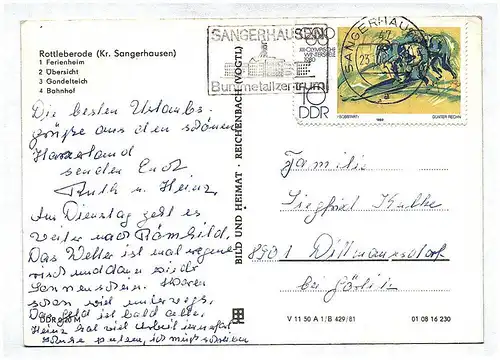 Rottleberode (Kr. Sangerhausen)
1 Ferienheim
2 Übersicht
3 Gondelteich
4 Bahnhof
SANGERHAUSEN
Buntmetallzentrum
SANGERHAUSEN
XIII. OLYMPISCHE
WINTERSPIELE
1980
10
DDR
1980
GÜNTER RECHN
Die besten Urlaubs-
grüße aus den schönen
Harzerland
senden Euch
Ruth u. Heinz
Am Dienstag geht es
weiter nach Römhild.
Das Wetter ist mal regne-
risch und dann wieder
Sonnenschein. Waren
schon viel unterwegs.
Das Geld ist bald alle.
Heinz hat viel Arbeit
putzen, ich muß schreiben
DDR 0,20 M
BILD UND HEIMAT · REICHENBACH (VOGTL)
Familie
Siegfried
8901 Dittmannsdorf
bei Görlitz
V 11 50 A 1/B 429/81
01 08 16 230